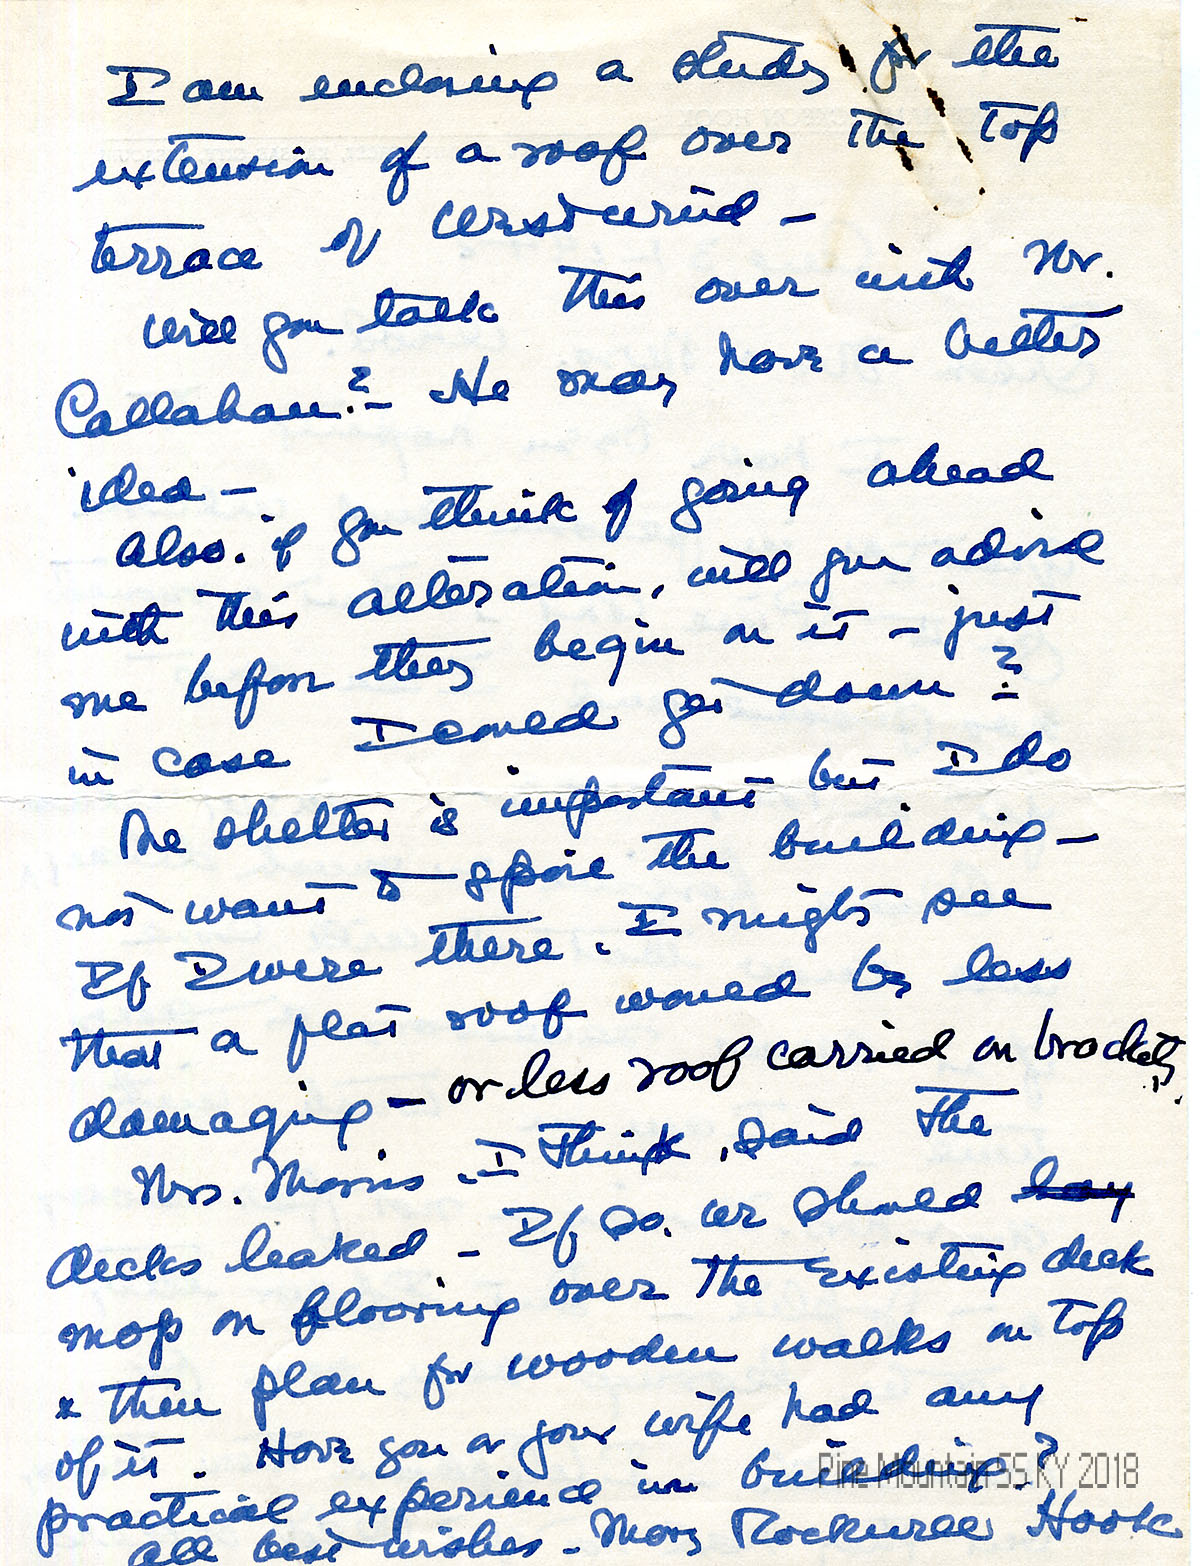 I am enclosing a study for the
extension of a roof over the top
terrace of West wind -
Will you talk this over with Mr.
Callahan? - He may have a better
idea -
Also. if you think of going ahead
with this alteration, will you advise
me before they begin on it - just
in case I could get down?
The shelter is important but I do
not want to spoil the building -
If I were there. I might see
that a flat roof would be less
damaging - or less roof carried on brackets.
Mrs. Morris, I think, said the
decks leaked - If so. we should
mop on flooring over the existing deck
& then plan for wooden walks on top
of it. Have you or your wife had any
practical experience in building?
All best wishes - Mary Rockwell Hook
Pine Mountain SS.KY 2018